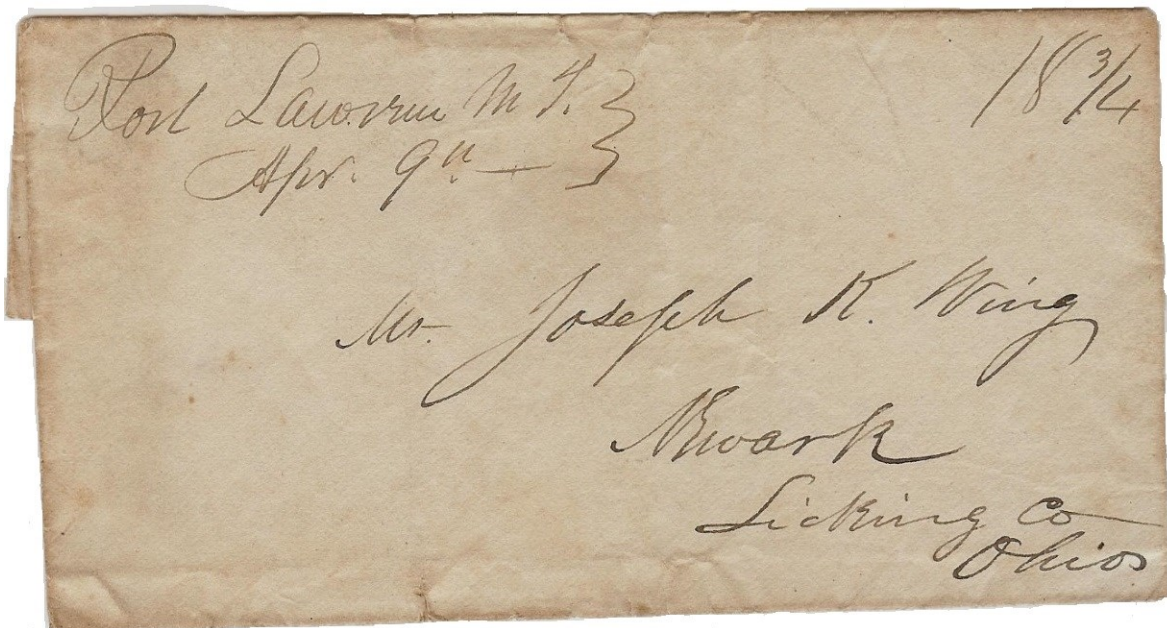 Port Lawrence M T. 18 3/4
Apr. 9th
Mr. Joseph K. Wing
Newark
Licking Co
Ohio